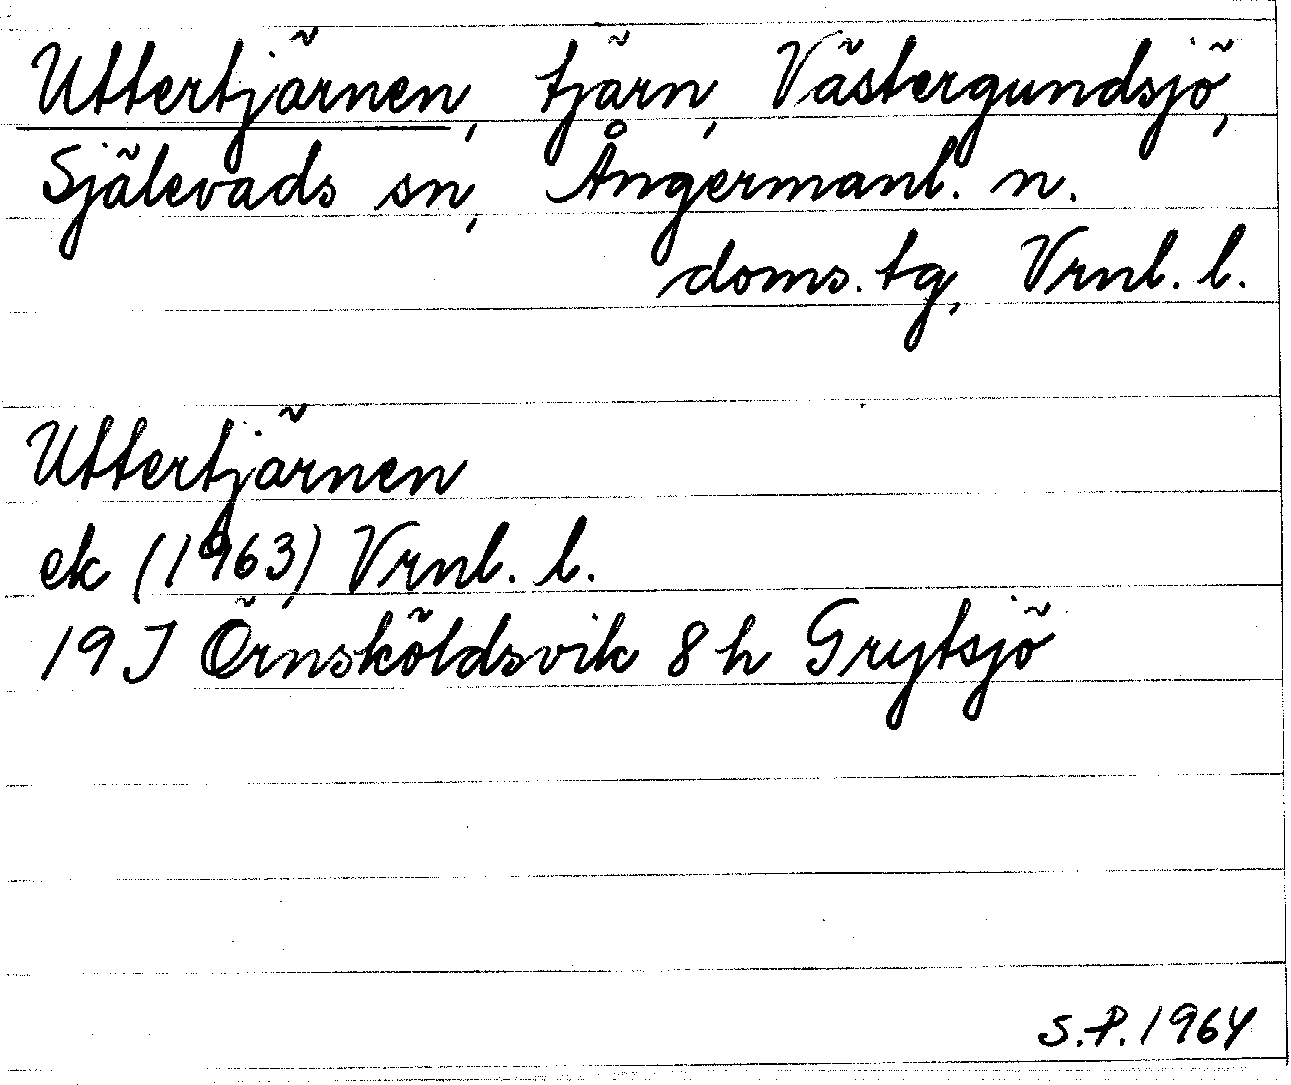 Uttertjärnen, tjärn, Västergundsjö,
Själevads sn, Ångermanl. n.
doms. tg, Vrnl. l.
Uttertjärnen
ek (1963) Vrnl. l.
19 J Örnsköldsvik 8 h Grytsjö
S.P. 1964